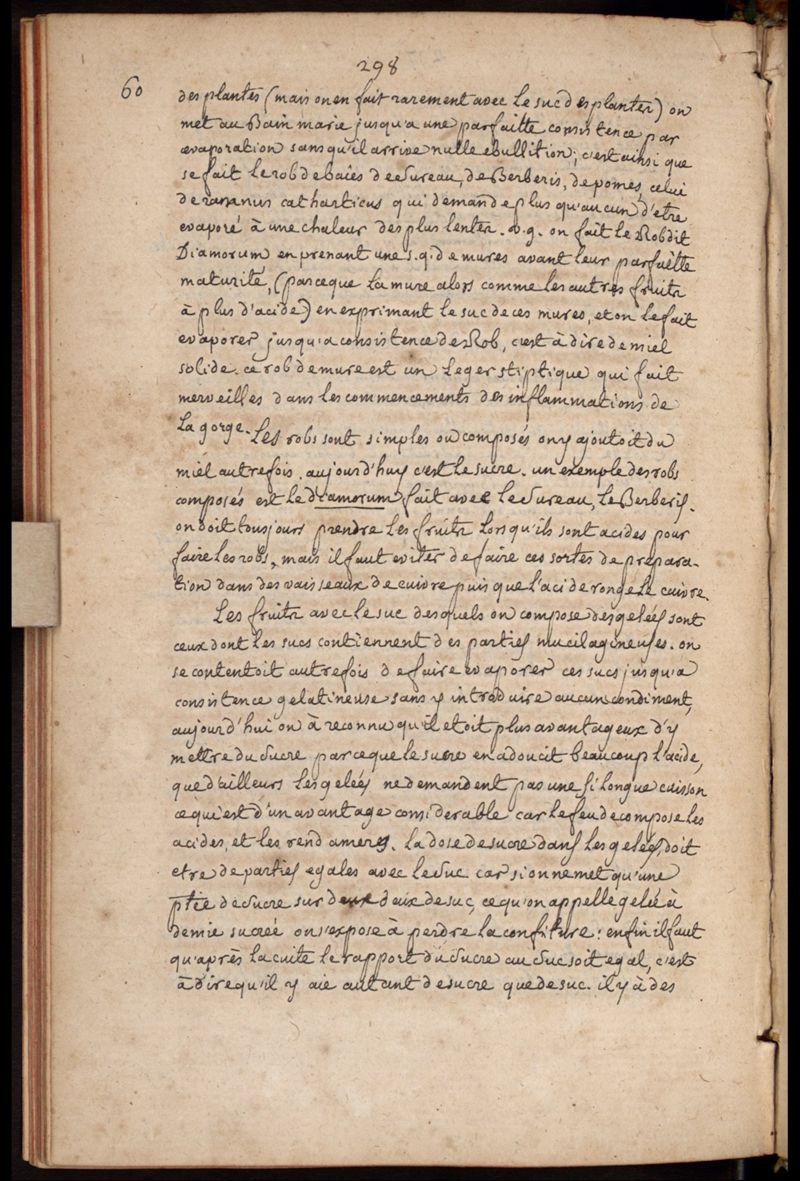 298
60
des plantes (mais on en fait rarement avec le suc des plantes) on
met au Bain marie jusqu'a une parfaitte consistence par
evaporation sans qu'il arrive nulle ebullition; c'est ainsi que
se fait le rob de baies de sureau, de Berberis, de pomes, celui
de ramnus catharticus qui demande plus qu'aucun d'etre
evaporé à une chaleur des plus lentes. v.g. on fait le Rob dit
Diamorum en prenant une s.q. de mures avant leur parfaitte
maturité, (parceque la mure alors comme les autres fruits
à plus d'acide) en exprimant le suc de ces mures, et on le fait
evaporer jusqu'a consistence de Rob, c'est à dire de miel
solide. ce rob de mure est un leger stiptique qui fait
merveilles dans les commencements des inflammations de
la gorge. Les robs sont simples ou composés on y ajoutoit du
miel autrefois. aujourd'huy c'est le sucre. un exemple des robs
composés est le diamorum fait avec le sureau, le Berberis.
on doit tousjours prendre les fruits lorsqu'ils sont acides pour
faire les robs, mais il faut eviter de faire ces sortes de prepara-
tion dans des vaisseaux de cuivre puis que l'acide ronge le cuivre.
Les fruits avec le suc desquels on compose des gelées sont
ceux dont les sucs contiennent des parties mucilagineuses. on
se contentoit autrefois de faire evaporer ces sucs jusqu'a
consistence gelatineuse sans y introduire aucun condiment,
aujourd'hui on à reconnu qu'il etoit plus avantageux d'y
mettre du sucre parceque le sucre en adoucit beaucoup l'acide,
que d'ailleurs les gelées ne demandent pas une si longue cuisson
ce qu'est d'un avantage considerable car le feu decompose les
acides, et les rend amers. la dose de sucre dans les gelées, doit
etre de parties egales avec le suc car si on ne met qu'une
ptie de sucre sur deux de suc, ce qu'on appelle gelée à
demie sucreé on s'expose à perdre la confiture: enfin il faut
qu'après la cuite le rapport du sucre au suc soit egal, c'est
à dire qu'il y aie autant de sucre que de suc. il y à des